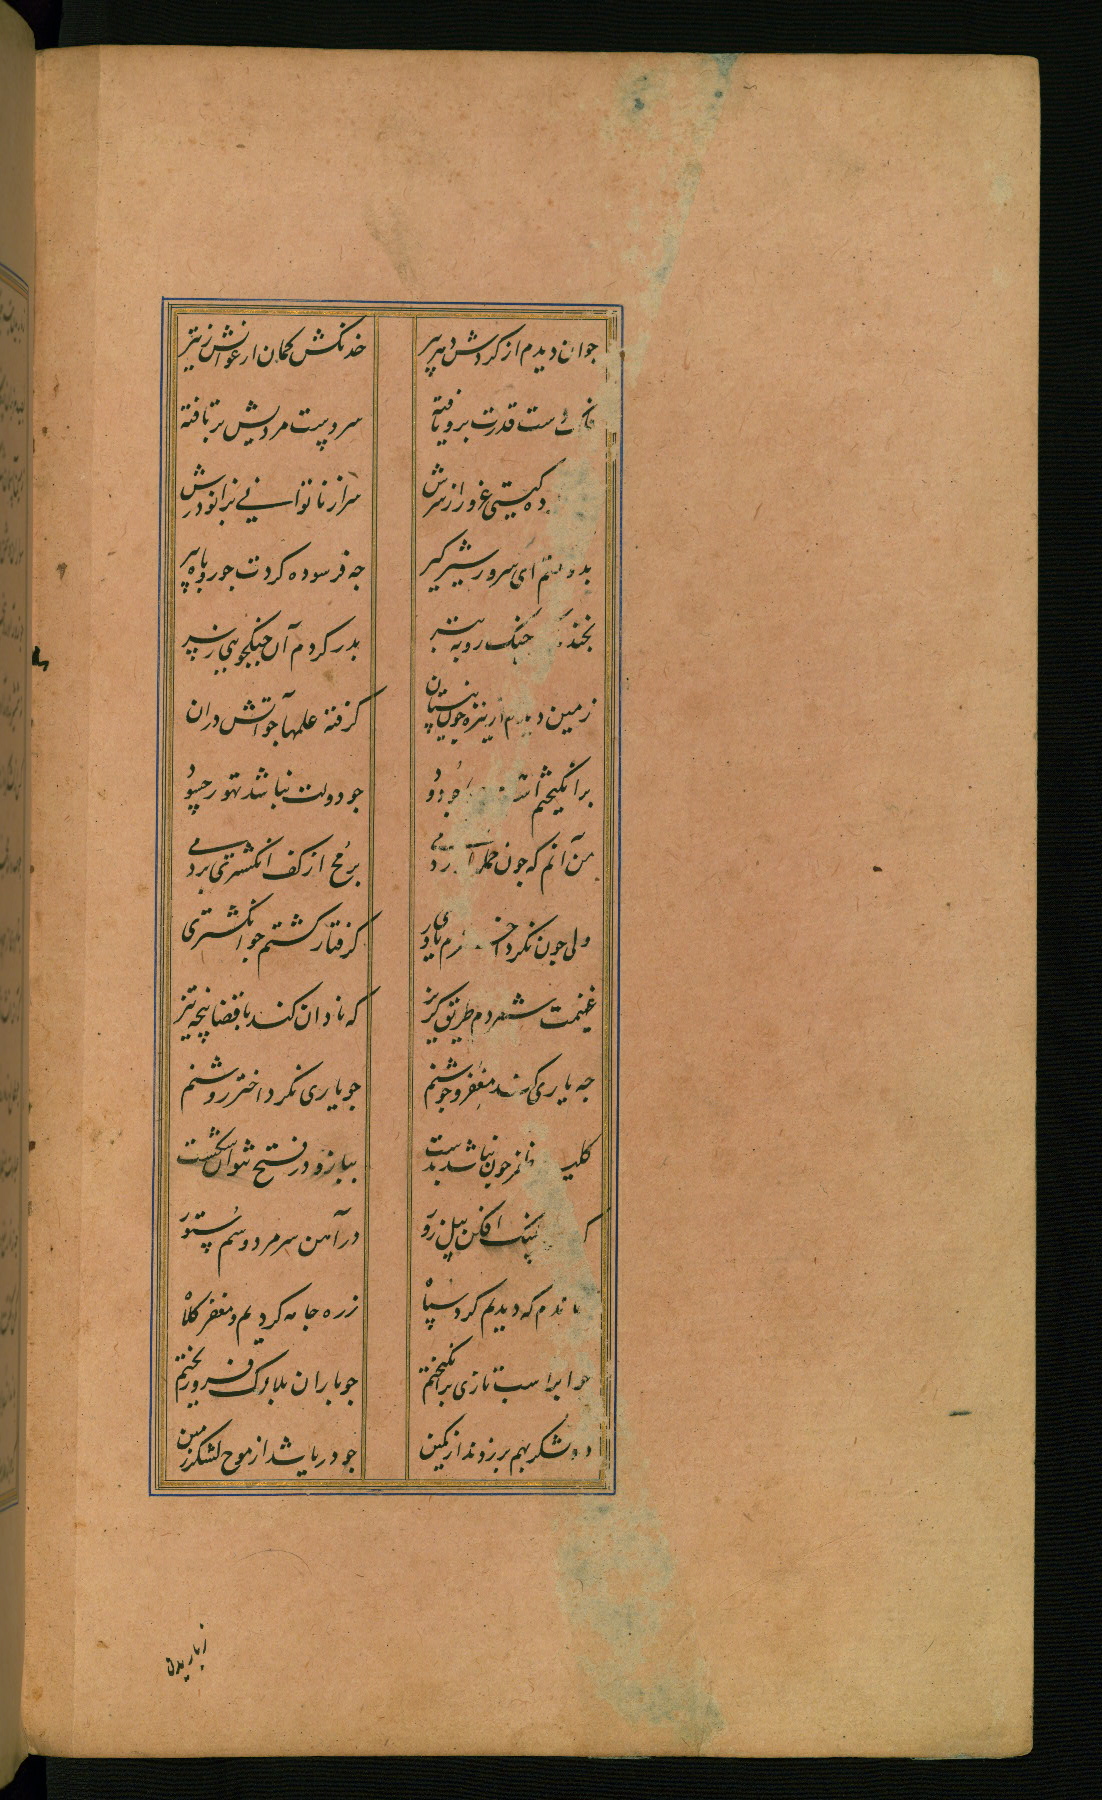 جوان دیدم از کردش دهر پیر خدنکش کمان ارغوانش زریر
فلک دست قدرت برو یافته سر دست مردیش برتافته
ده کیتی غرور از سرش سر از ناتوانی بزانو درش
بدو کفتم ای سرور شیر کیر جه فرسوده کردت جو روباه پیر
بخندید جنک روز تتر بدر کردم آن جنکجویی ز سر
زمین دیدم از نیزه جون نیستان کرفته علمها جو آتش دران
برانکیختم جو دود جو دولت نباشد تهور جه سود
من آنم که جون حمله آوردمی برمح از کف انکشتری بردمی
ولی جون نکرد اخترم یاوری کرفتار کشتم جو انکشتری
غنیمت شمردم طریق کریز که نادان کند با قضا پنجه تیز
جه یاری کند مغفر و جوشنم جو یاری نکرد اختر روشنم
کلید ظفر جون نباشد بدست ببازو در فتح نتوان شکست
پلنک افکن پیل زور در آهن سر مرد و سم ستور
ماندم که دیدیم کرد سپاه زره جامه کردیم و مغفر کلاه
جو ابر اسب تازی برانکیختم جو باران بلارک فرو ریختم
دو لشکر بهم بر زدند از کمین جو دریا شد از موج لشکر زمین
زباریدن